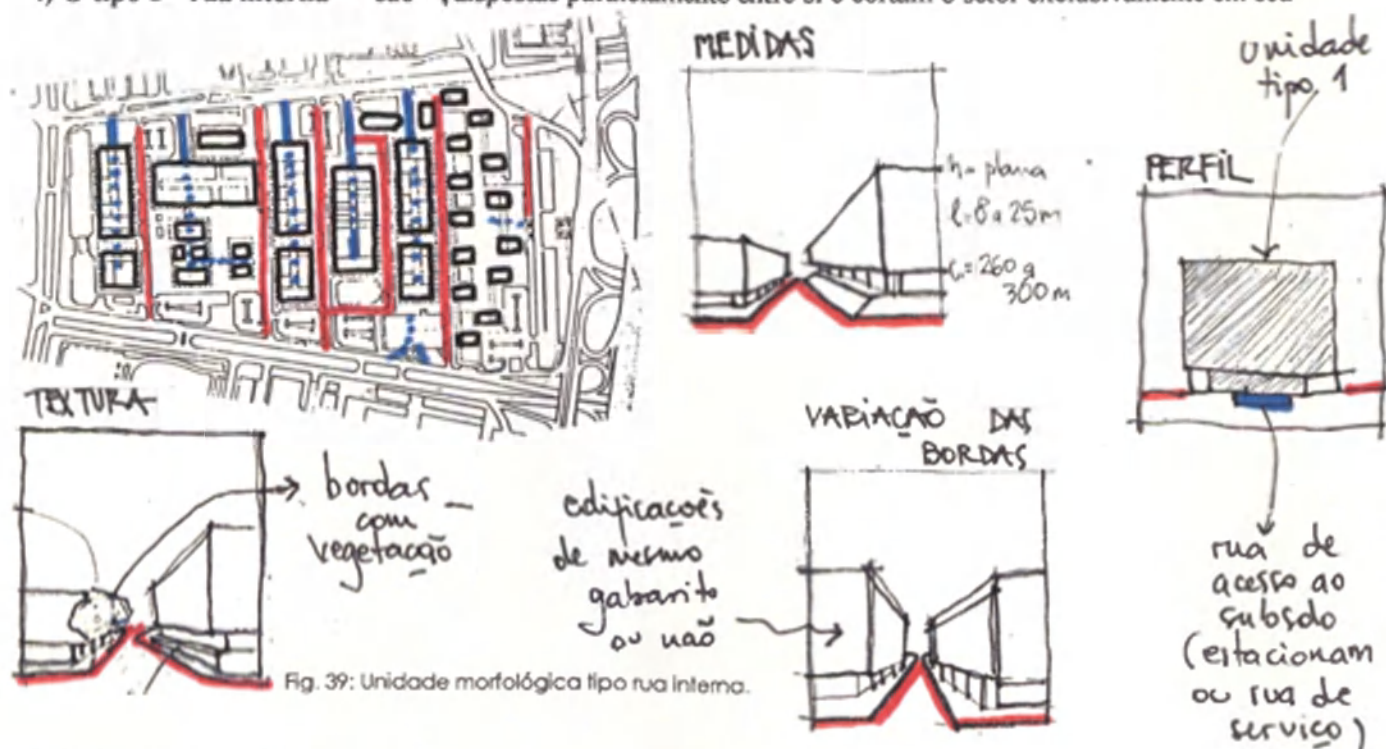 são
MEDIDAS
h= plana
l=8 a 25m
c=260 a
300m
unidade
tipo 1
PERFIL
rua de
acesso ao
subsolo
(estacionam
ou rua de
serviço)
TEXTURA
bordas
com
vegetação
VARIAÇÃO DAS
BORDAS
edificações
de mesmo
gabarito
ou não
Fig. 39: Unidade morfológica tipo rua interna.